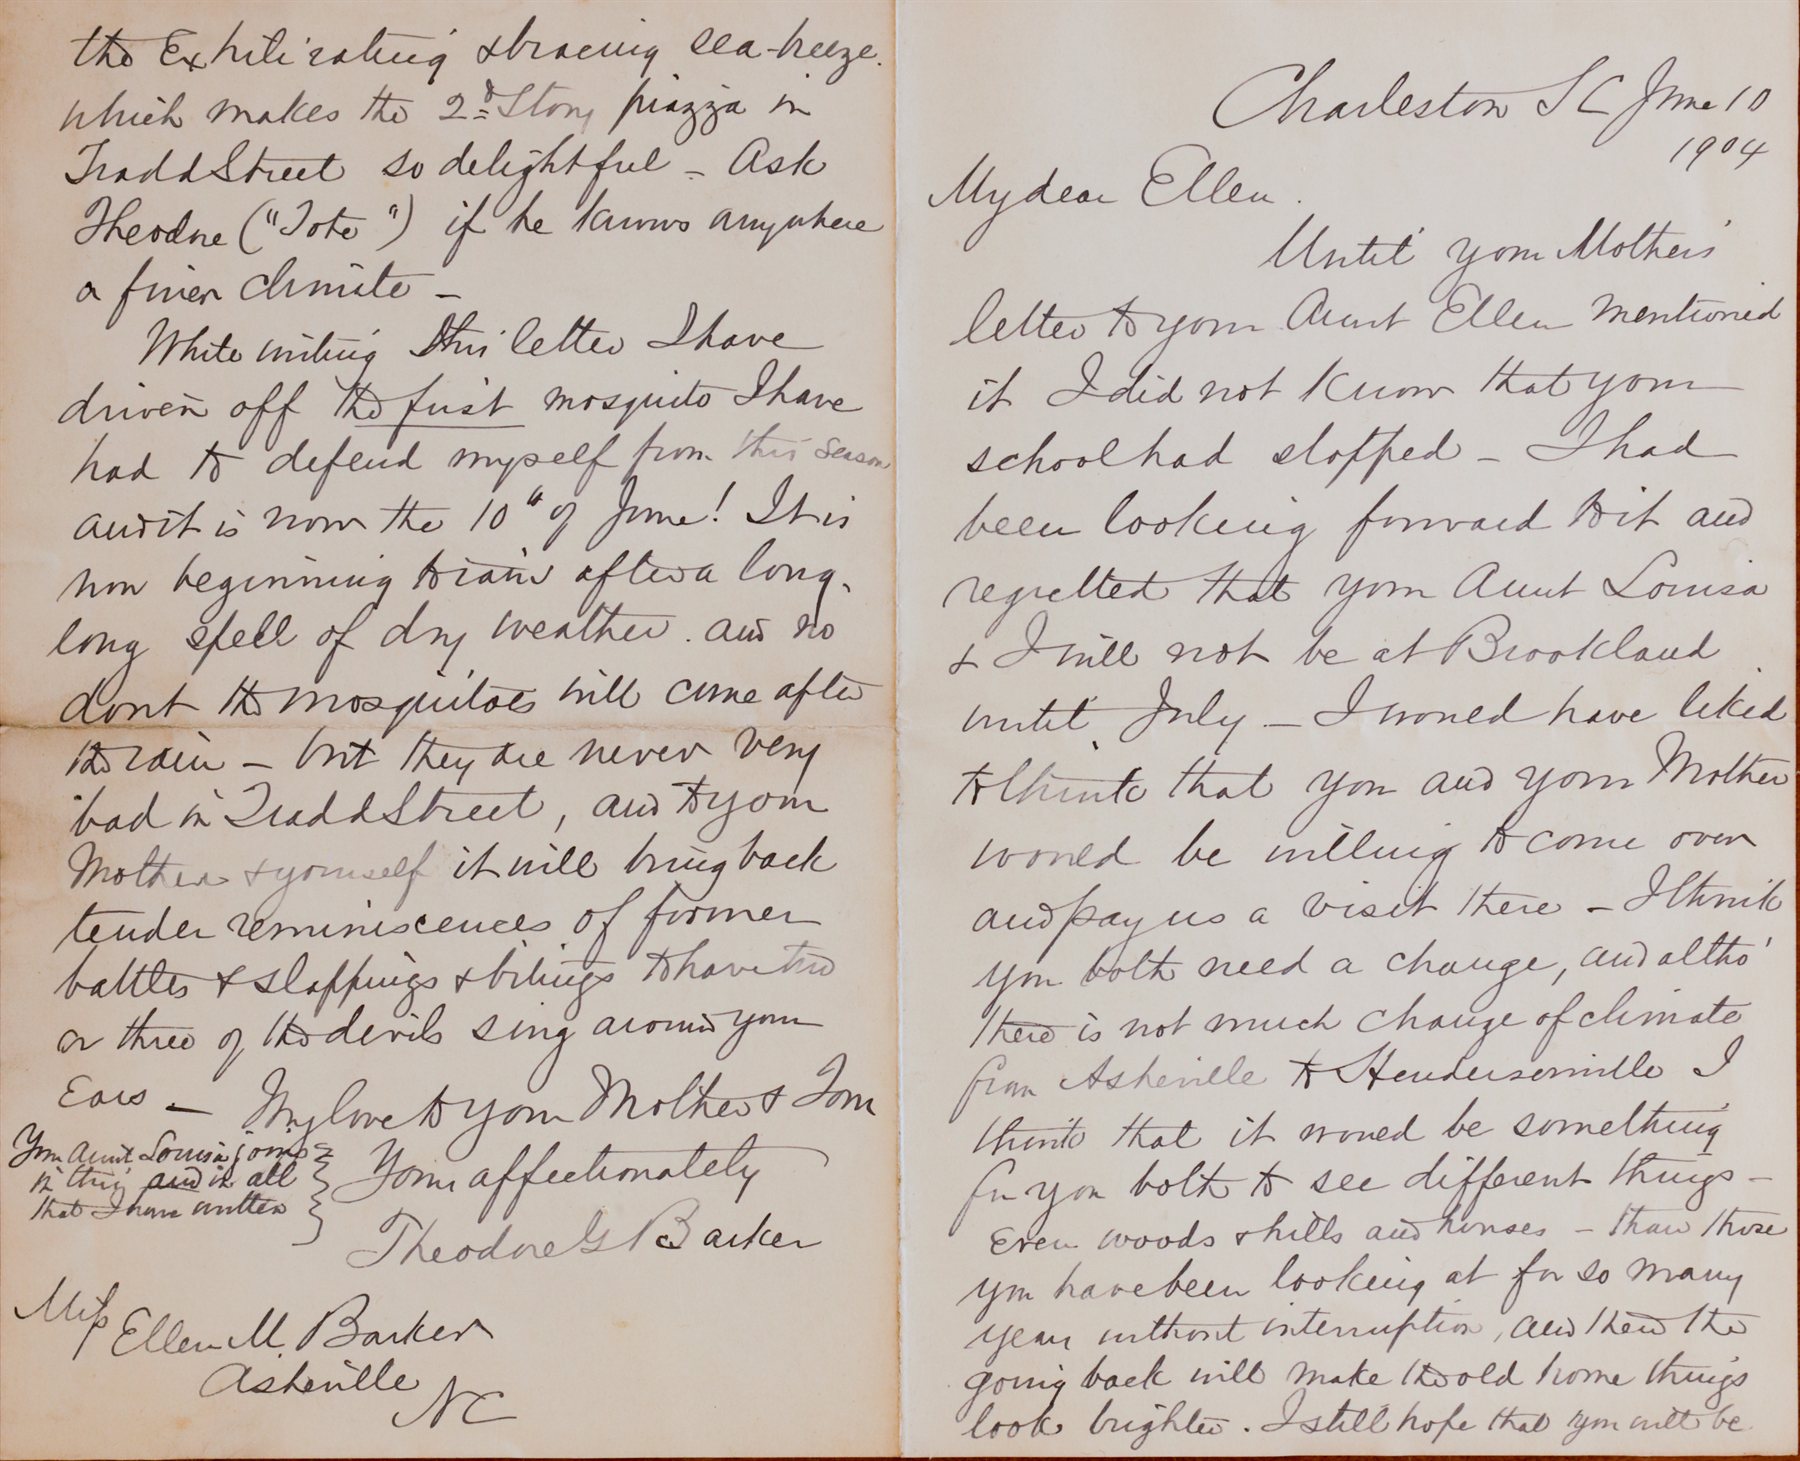 Charleston S C June 10
1904
My dear Ellen.
Until your Mother's
letter to your Aunt Ellen mentioned
it I did not know that your
school had stopped – I had
been looking forward to it and
regretted that your Aunt Louisa
& I will not be at Brookland
until July – I would have liked
to think that you and your Mother
would be willing to come over
and pay us a visit there – I think
you both need a change, and altho'
there is not much change of climate
from Asheville to Hendersonville I
think that it would be something
for you both to see different things –
even woods & hills and houses – than those
you have been looking at for so many
years without interruption, and then the
going back will make the old home things
look brighter. I still hope that you will be
the exhilirating & bracing sea-breeze.
which makes the 2d Story piazza in
Tradd Street so delightful – Ask
Theodore ("Tote") if he knows anywhere
a finer climate –
While writing this letter I have
driven off the first mosquito I have
had to defend myself from this season
and it is now the 10th of June! It is
now beginning to rain after a long,
long spell of dry weather. and no
doubt the mosquitoes will come after
the rain – but they are never very
bad in Tradd Street, and to your
Mother & yourself it will bring back
tender reminiscences of former
battles & slappings & bitings to have two
or three of the devils sing around your
Ears – My love to your Mother & Tom
Your Aunt Louisa joins
in this and in all
that I have written
Your affectionately
Theodore G Barker
Miss
Ellen M. Barker
Asheville
NC